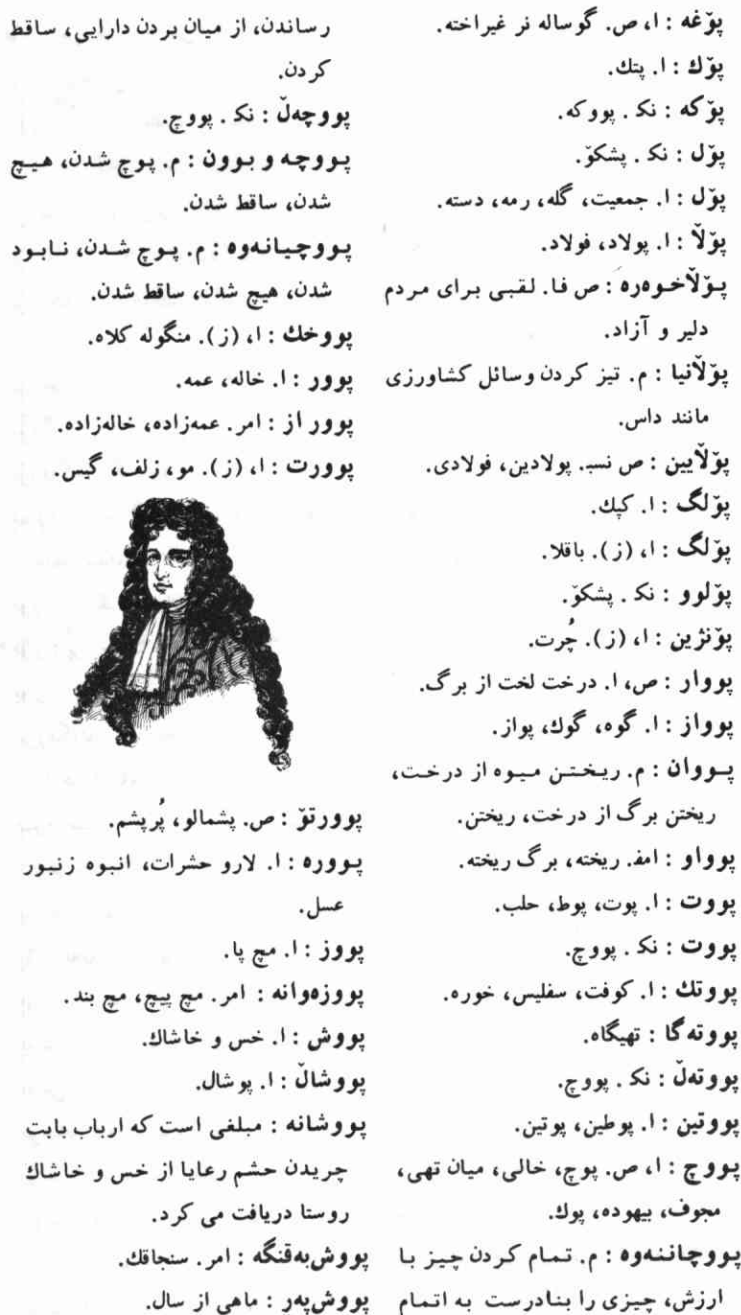 پۆغه : ا، ص. گوساله نر غیراخته.
پۆك : ا. پتك.
پۆكه : نک . پووكه.
پۆل : نک . پشكۆ.
پۆل : ا. جمعیت، گله، رمه، دسته.
پۆڵا : ا. پولاد، فولاد.
پۆڵاخوەره : ص فا. لقبی برای مردم
دلیر و آزاد.
پۆڵانیا : م. تیز کردن وسائل کشاورزی
مانند داس.
پۆڵایین : ص نسبـ. پولادین، فولادی.
پۆلگ : ا. کپك.
پۆلگ : ا، (ز). باقلا.
پۆلوو : نک . پشكۆ.
پۆنژین : ا، (ز). چُرت.
پووار : ص، ا. درخت لخت از برگ.
پوواز : ا. گوه، گوك، پواز.
پـووان : م. ریـخـتـن مـیـوه از درخـت،
ریختن برگ از درخت، ریختن.
پوواو : امفـ. ریخته، برگ ریخته.
پووت : ا. پوت، پوط، حلب.
پووت : نک . پووچ.
پووتك : ا. کوفت، سفلیس، خوره.
پووته‌گا : تهیگاه.
پووته‌ڵ : نک . پووچ.
پووتین : ا. پوطین، پوتین.
پـووچ : ا، ص. پوچ، خالی، میان تهی،
مجوف، بیهوده، پوك.
پـووچاننـه‌وه : م. تـمـام کـردن چـیـز بـا
ارزش، چیزی را بنادرست به اتمام
رساندن، از میان بردن دارایی، ساقط
کردن.
پووچه‌ڵ : نک . پووچ.
پـووچه و بـوون : م. پـوچ شدن، هـیـچ
شدن، ساقط شدن.
پـووچیـانـه‌وه : م. پـوچ شـدن، نـابـود
شدن، هیچ شدن، ساقط شدن.
پووخك : ا، (ز). منگوله کلاه.
پوور : ا. خاله، عمه.
پوور از : امر. عمه‌زاده، خاله‌زاده.
پوورت : ا، (ز). مو، زلف، گیس.
پوورتۆ : ص. پشمالو، پُرپشم.
پـووره : ا. لارو حشرات، انبوه زنبور
عسل.
پووز : ا. مچ پا.
پووزه‌وانه : امر. مچ پیچ، مچ بند.
پووش : ا. خس و خاشاك.
پووشاڵ : ا. پوشال.
پـووشانه : مبلغی است که ارباب بابت
چریدن حشم رعایا از خس و خاشاك
روستا دریافت می کرد.
پووش‌به‌قنگه : امر. سنجاقك.
پووش‌پەر : ماهی از سال.